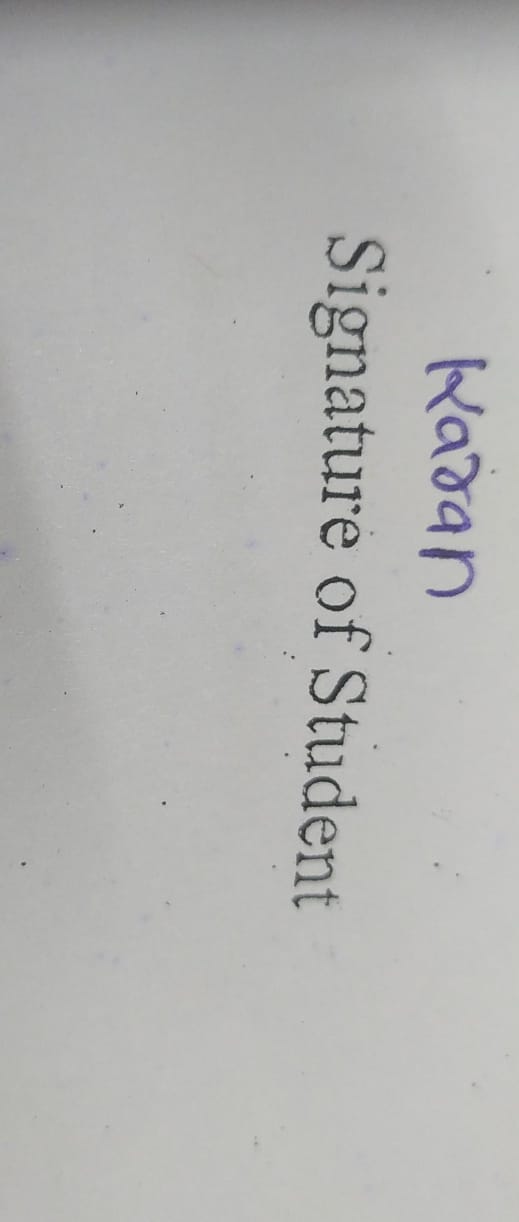 Karan
Signature of Student